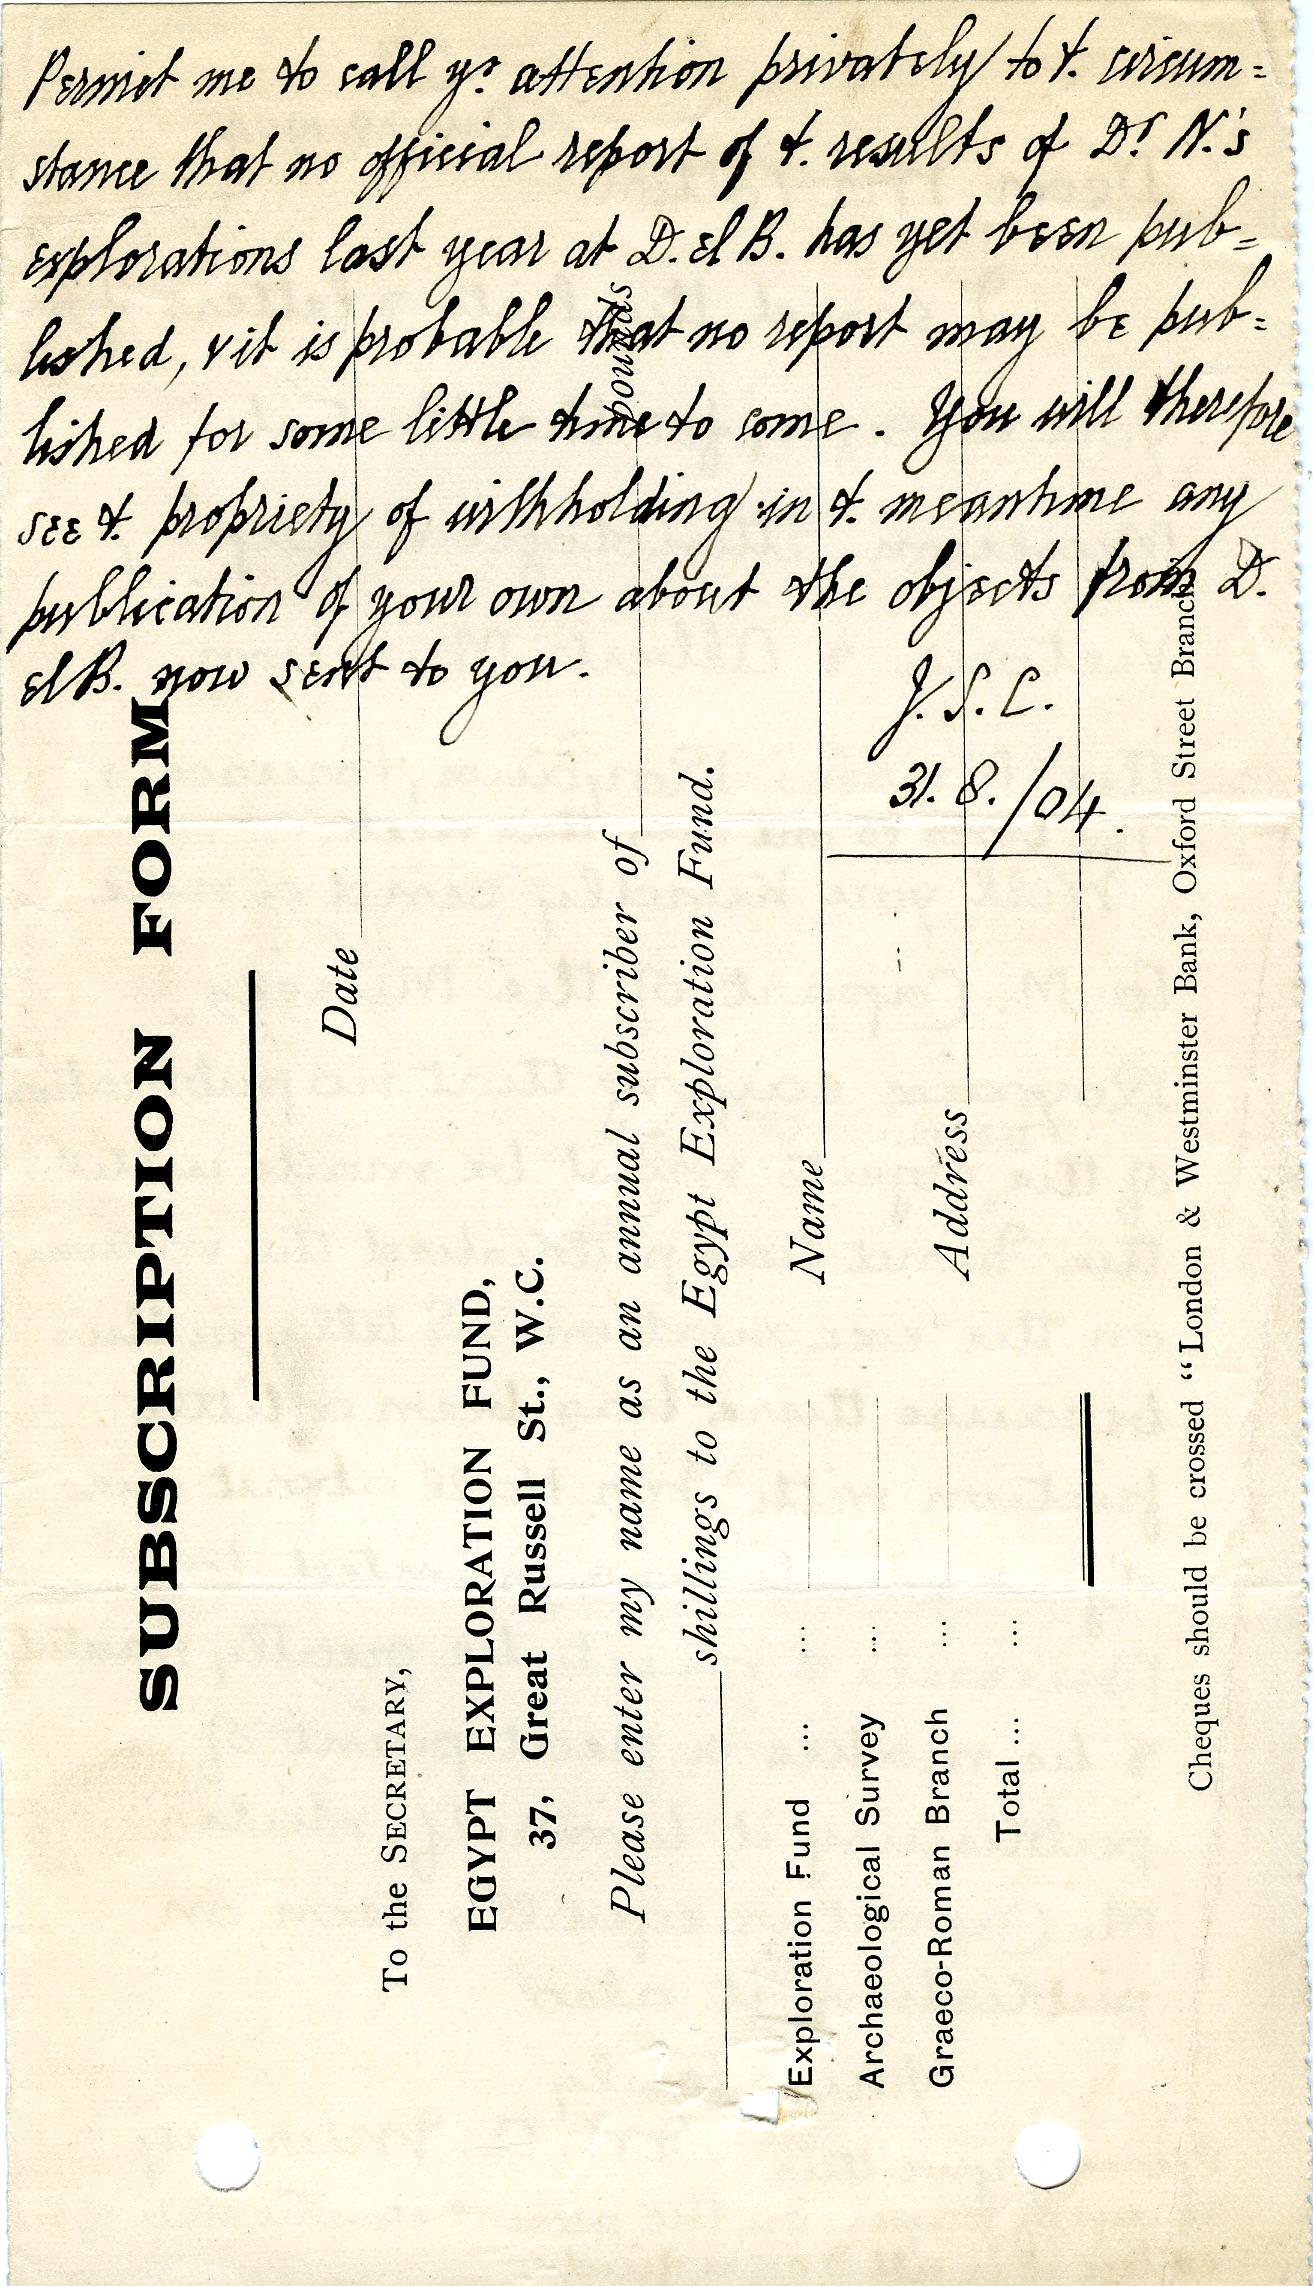 Permit me to call yr. attention privately to t. circum=
stance that no official report of t. results of Dr. N.'s
explorations last year at D. el B. has yet been pub=
lished, & it is probable that no report may be pub=
lished for some little time to come. You will therefore
see t. propriety of withholding in t. meantime any
publication of your own about the objects from D.
el B. now sent to you.
J. S. C.
31. 8. /04.
SUBSCRIPTION FORM
Date
To the SECRETARY,
EGYPT EXPLORATION FUND,
37, Great Russell St., W.C.
Please enter my name as an annual subscriber of pounds
shillings to the Egypt Exploration Fund.
Exploration Fund ... ...
Name
Archaeological Survey ...
Graeco-Roman Branch ...
Address
Total ... ...
Cheques should be crossed “London & Westminster Bank, Oxford Street Branch